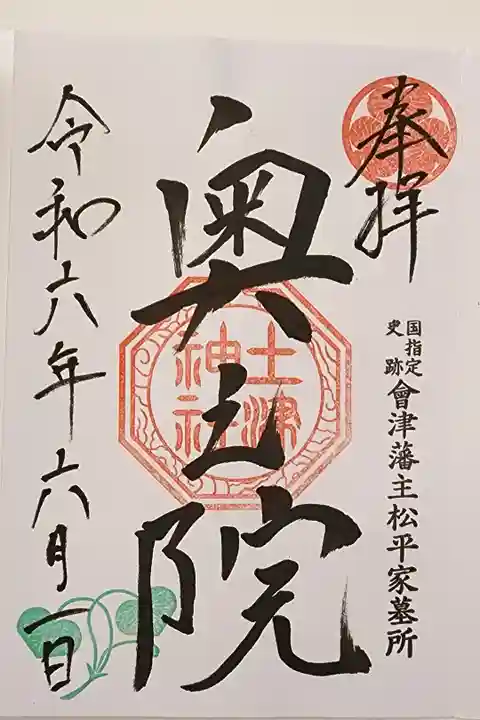 奉拝
国指定
史跡
會津藩主松平家墓所
奥之院
土津
神社
令和六年六月一日